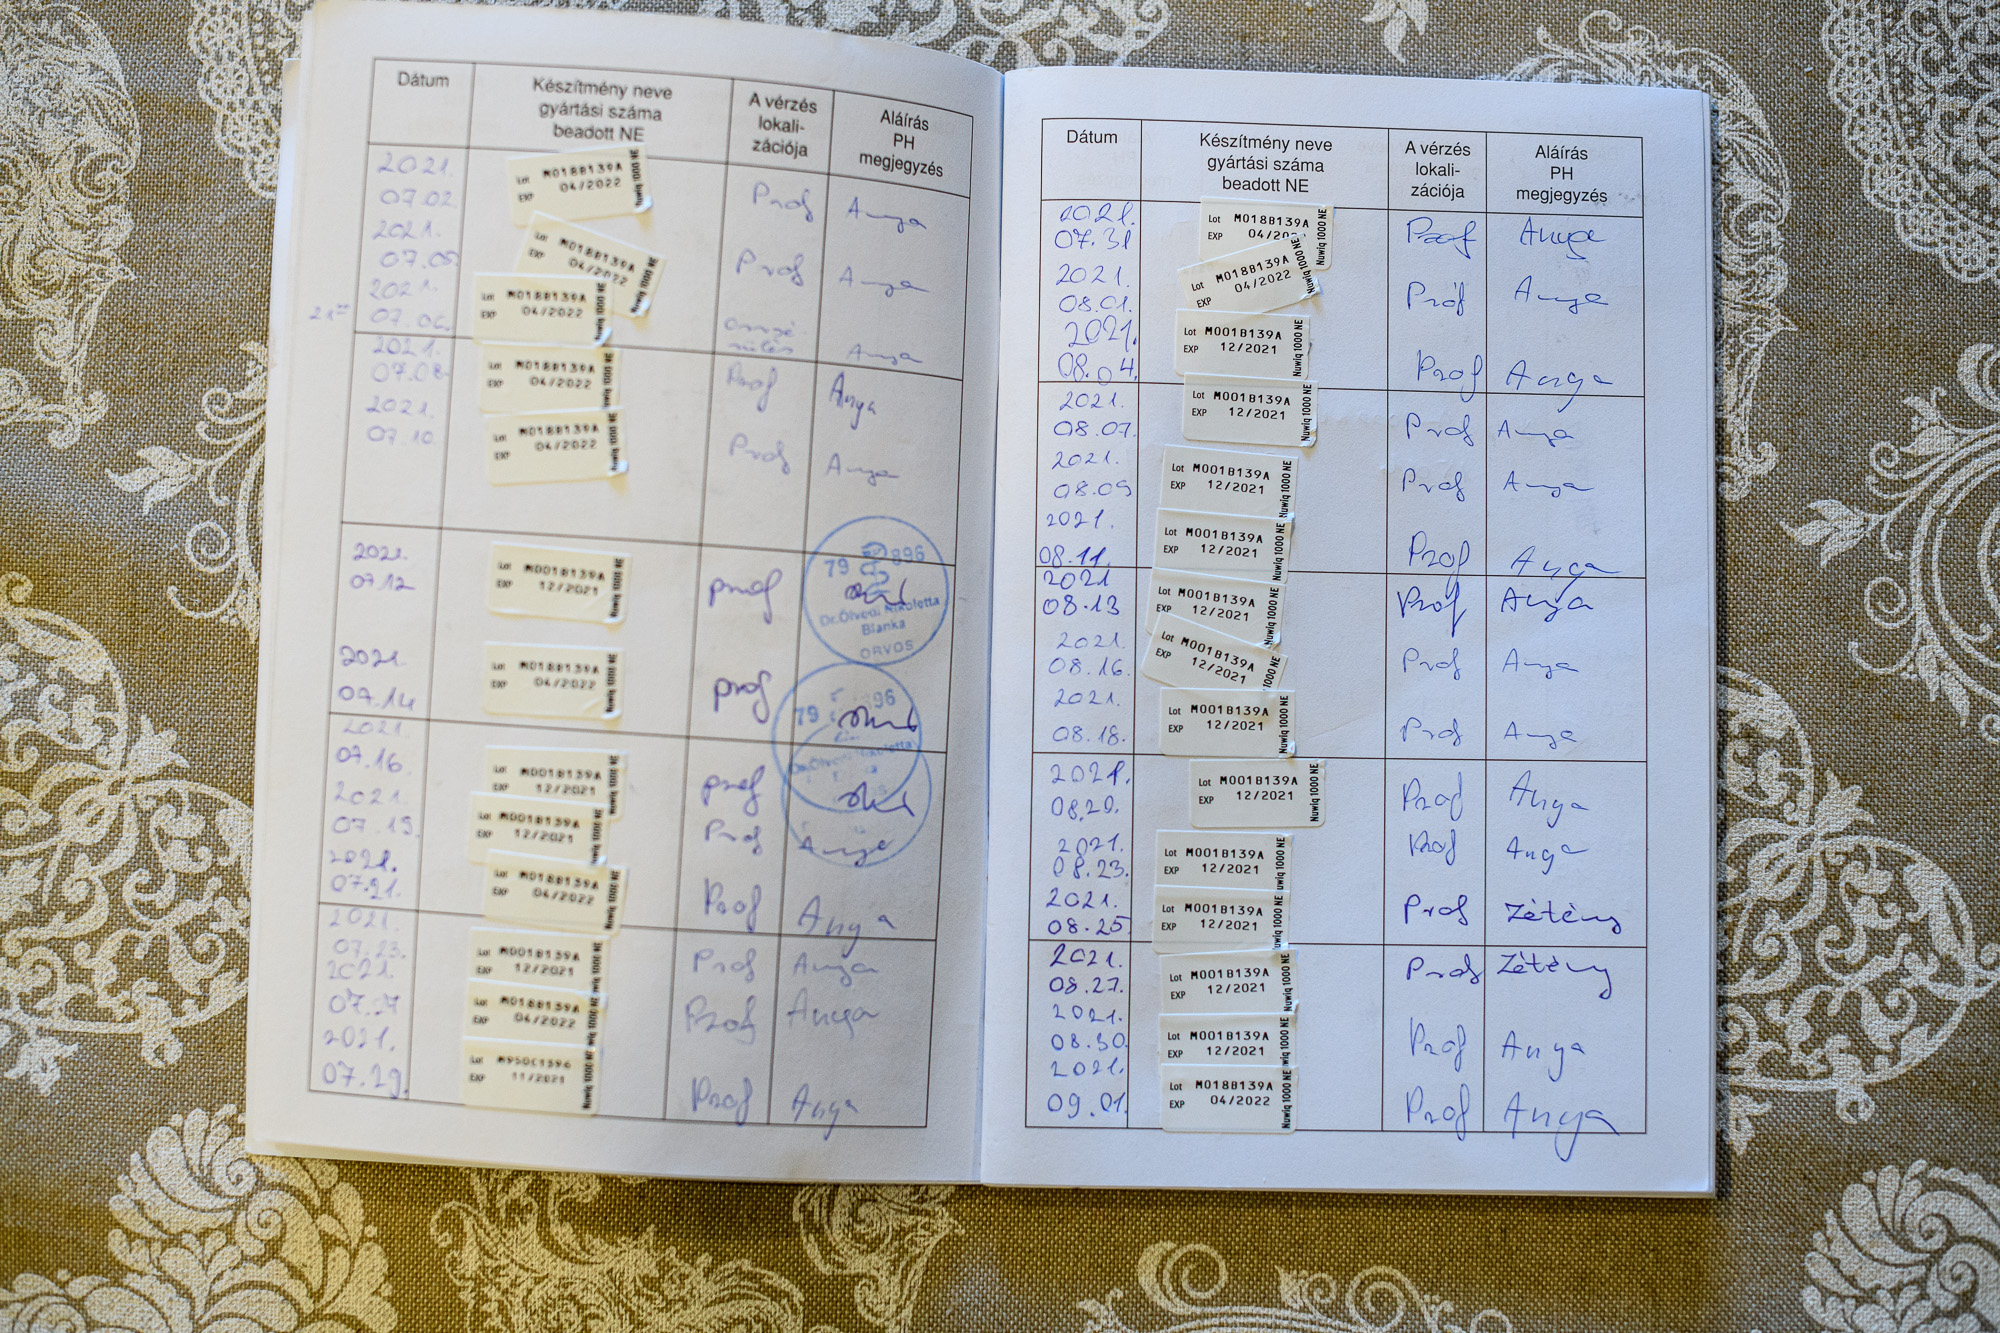 Dátum
Készítmény neve
gyártási száma
beadott NE
A vérzés
lokali-
zációja
Aláírás
PH
megjegyzés
2021.
07.02
Lot M018B139A
EXP 04/2022
Nuwiq 1000 NE
Prof
Anya
2021.
07.05
Lot M018B139A
EXP 04/2022
Nuwiq 1000 NE
Prof
Anya
2021.
Lot M018B139A
EXP 04/2022
Nuwiq 1000 NE
Anya
2021.
07.08.
Lot M018B139A
EXP 04/2022
Nuwiq 1000 NE
Prof
Anya
2021.
07.10.
Lot M018B139A
EXP 04/2022
Nuwiq 1000 NE
Prof
Anya
2021.
07.12
Lot M001B139A
EXP 12/2021
Nuwiq 1000 NE
prof
79 896
Dr.Ölvedi Nikoletta
Blanka
ORVOS
2021.
07.14
Lot M018B139A
EXP 04/2022
Nuwiq 1000 NE
prof
79 896
2021.
07.16.
Lot M001B139A
EXP 12/2021
Nuwiq 1000 NE
prof
2021.
07.19.
Lot M001B139A
EXP 12/2021
Nuwiq 1000 NE
Prof
Anya
2021.
07.21.
Lot M018B139A
EXP 04/2022
Nuwiq 1000 NE
Prof
Anya
2021.
07.23.
Lot M001B139A
EXP 12/2021
Nuwiq 1000 NE
Prof
Anya
2021.
Lot M018B139A
EXP 04/2022
Nuwiq 1000 NE
Prof
Anya
2021.
07.29.
Lot M950C1396
EXP 11/2021
Nuwiq 1000 NE
Prof
Anya
Dátum
Készítmény neve
gyártási száma
beadott NE
A vérzés
lokali-
zációja
Aláírás
PH
megjegyzés
2021.
07.31
Lot M018B139A
EXP 04/202
Nuwiq 1000 NE
Prof
Anya
2021.
08.01.
Lot M018B139A
EXP 04/2022
Nuwiq 1000 NE
Prof
Anya
2021.
08.04.
Lot M001B139A
EXP 12/2021
Nuwiq 1000 NE
Prof
Anya
2021.
08.07.
Lot M001B139A
EXP 12/2021
Nuwiq 1000 NE
Prof
Anya
2021.
08.09
Lot M001B139A
EXP 12/2021
Nuwiq 1000 NE
Prof
Anya
2021.
08.11.
Lot M001B139A
EXP 12/2021
Nuwiq 1000 NE
Prof
Anya
2021
08.13
Lot M001B139A
EXP 12/2021
Nuwiq 1000 NE
Prof
Anya
2021.
08.16.
Lot M001B139A
EXP 12/2021
1000 NE
Prof
Anya
2021.
08.18.
Lot M001B139A
EXP 12/2021
Nuwiq 1000 NE
Prof
Anya
2021.
08.20.
Lot M001B139A
EXP 12/2021
Nuwiq 1000 NE
Prof
Anya
2021.
08.23.
Lot M001B139A
EXP 12/2021
uwiq 1000 NE
Prof
Anya
2021.
08.25.
Lot M001B139A
EXP 12/2021
Nuwiq 1000 NE
Prof
Zétény
2021.
08.27.
Lot M001B139A
EXP 12/2021
Nuwiq 1000 NE
Prof
Zétény
2021.
08.30.
Lot M001B139A
EXP 12/2021
Nuwiq 1000 NE
Prof
Anya
2021.
09.01.
Lot M018B139A
EXP 04/2022
Nuwiq 1000 NE
Prof
Anya